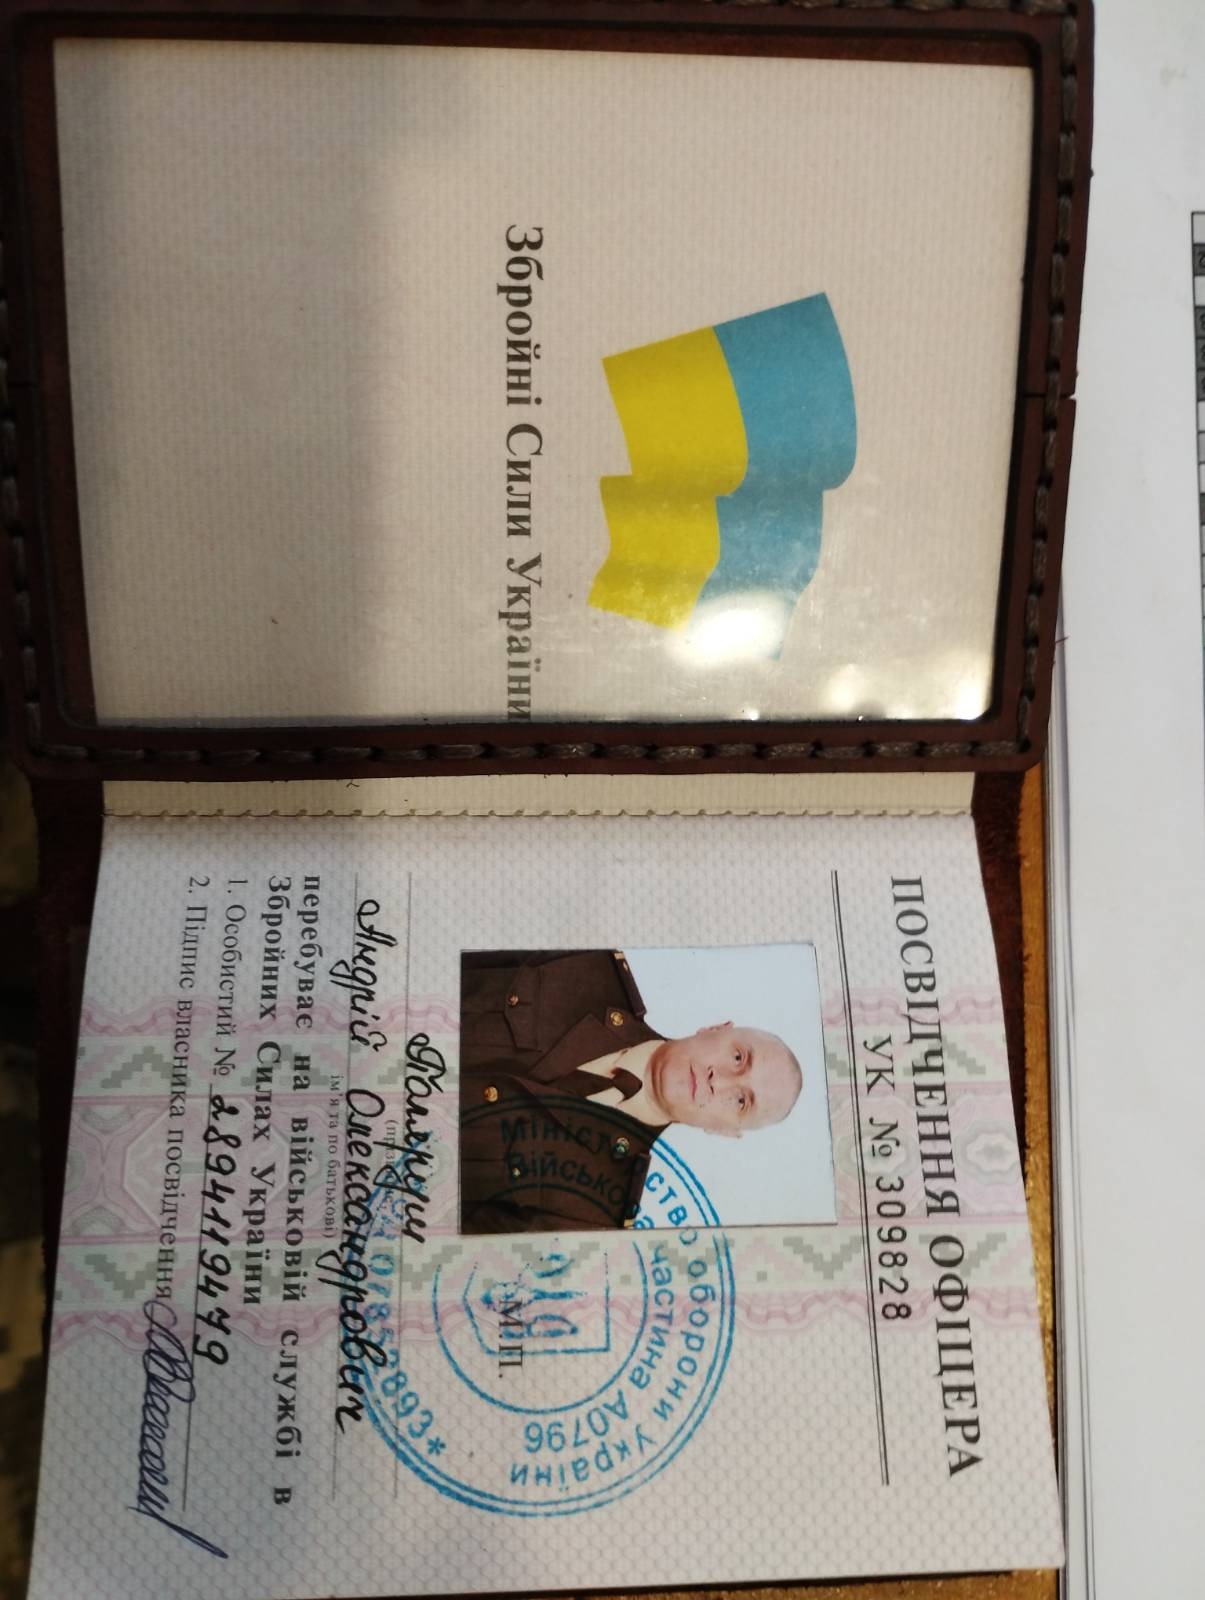 Збройні Сили України
ПОСВІДЧЕННЯ ОФІЦЕРА
УК № 309828
Міністерство оборони України
Військова частина А0796
07852893*
М.П.
Андрій Олександрович
ім'я та по батькові)
перебуває на військовій службі в
Збройних Силах України
1. Особистий № 2894119479
2. Підпис власника посвідчення